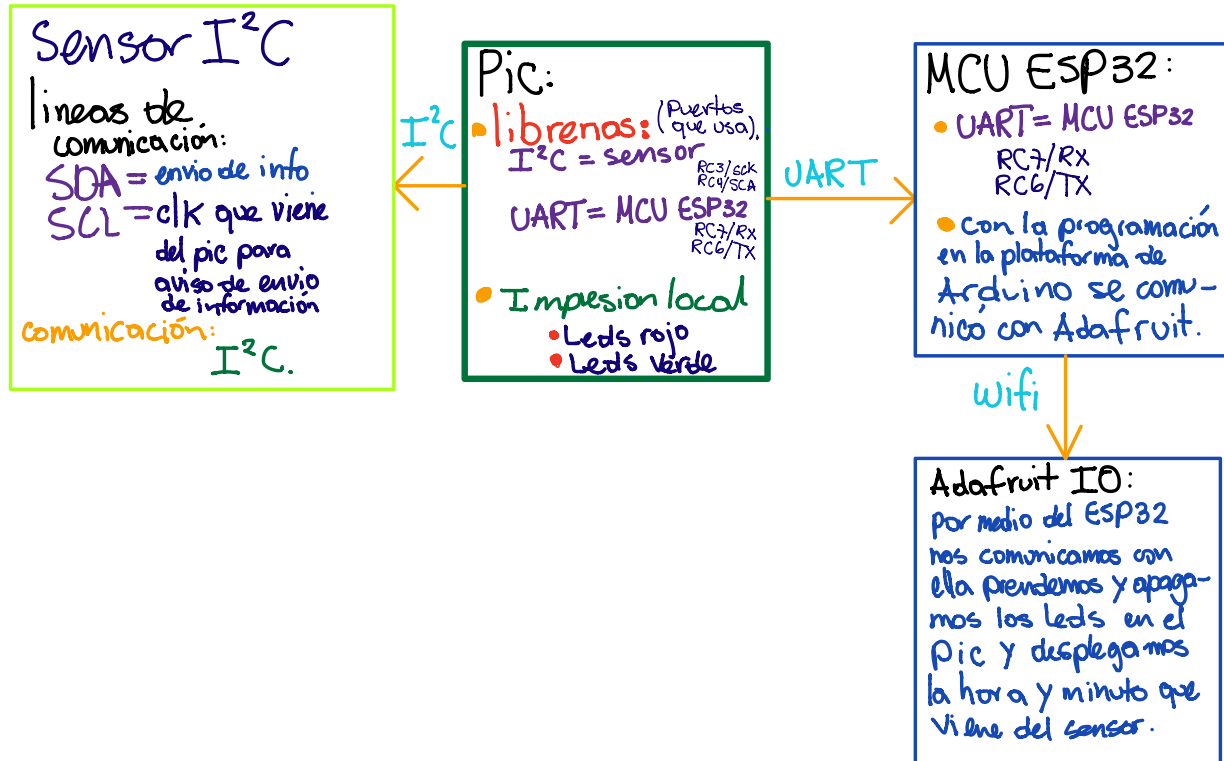 Sensor I²C
lineas de
comunicación:
SDA = envio de info
SCL = clk que viene
del pic para
aviso de envio
de información
comunicación:
I²C.
I²C
Pic:
librerias: (Puertos
que usa).
I²C = sensor
RC3/SCK
RC4/SCA
UART = MCU ESP32
RC7/RX
RC6/TX
Impresion local
Leds rojo
Leds verde
UART
MCU ESP32:
UART = MCU ESP32
RC7/RX
RC6/TX
con la programación
en la plataforma de
Arduino se comu-
nicó con Adafruit.
wifi
Adafruit IO:
por medio del ESP32
nos comunicamos con
ella prendemos y apaga-
mos los Leds en el
Pic y desplegamos
la hora y minuto que
viene del sensor.